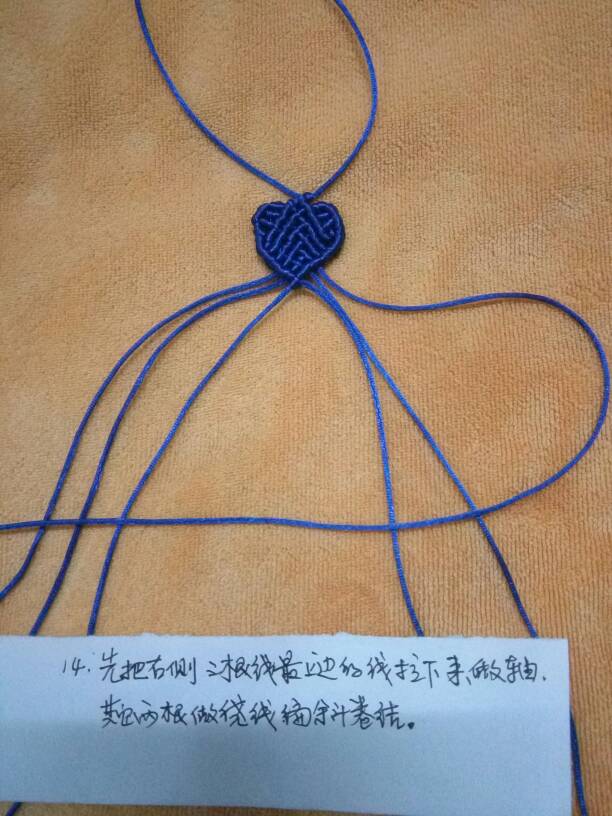 14. 先把右侧三根线最上边的线拉下来做轴.
其它两根做绕线编斜卷结。